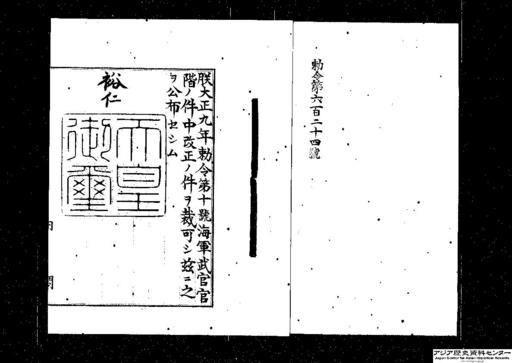 勅令第六百二十四號
朕大正九年勅令第十號海軍武官官
階ノ件中改正ノ件ヲ裁可シ茲ニ之
ヲ公布セシム
裕仁
天皇
御璽
内閣
アジア歴史資料センター
Japan Center for Asian Historical Records